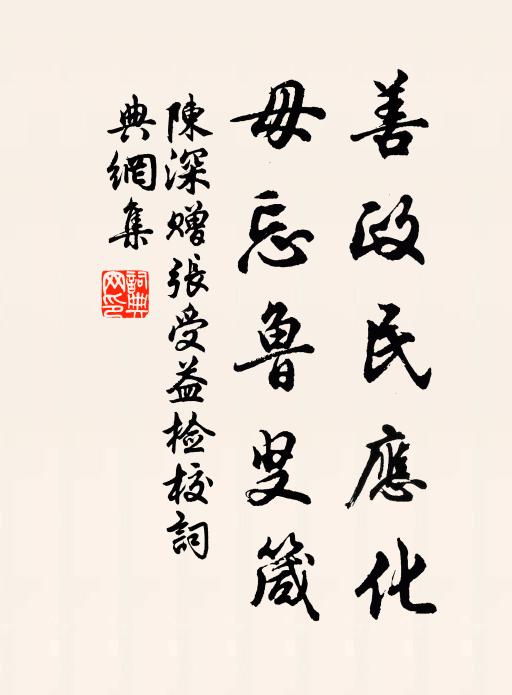 善政民應化
毋忘魯叟箴
陳深赠張受益檢校詞
典網集
詞典網印